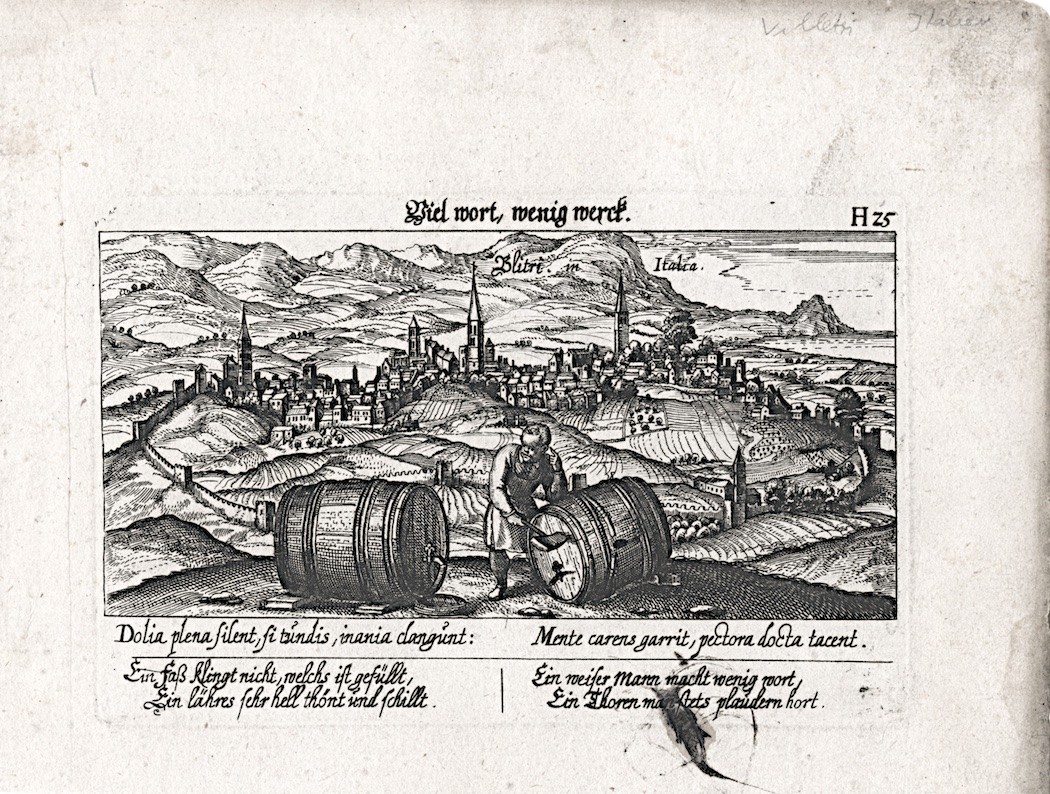 Velletri Italien
Viel wort, wenig werck.
H 25
Blitri. in Italia.
Dolia plena silent, si tundis, inania clangunt:
Mente carens garrit, pectora docta tacent.
Ein faß klingt nicht, welchs ist gefüllt,
Ein lähres sehr hell thönt und schillt.
Ein weiser Mann macht wenig wort,
Ein Thoren man stets plaudern hort.